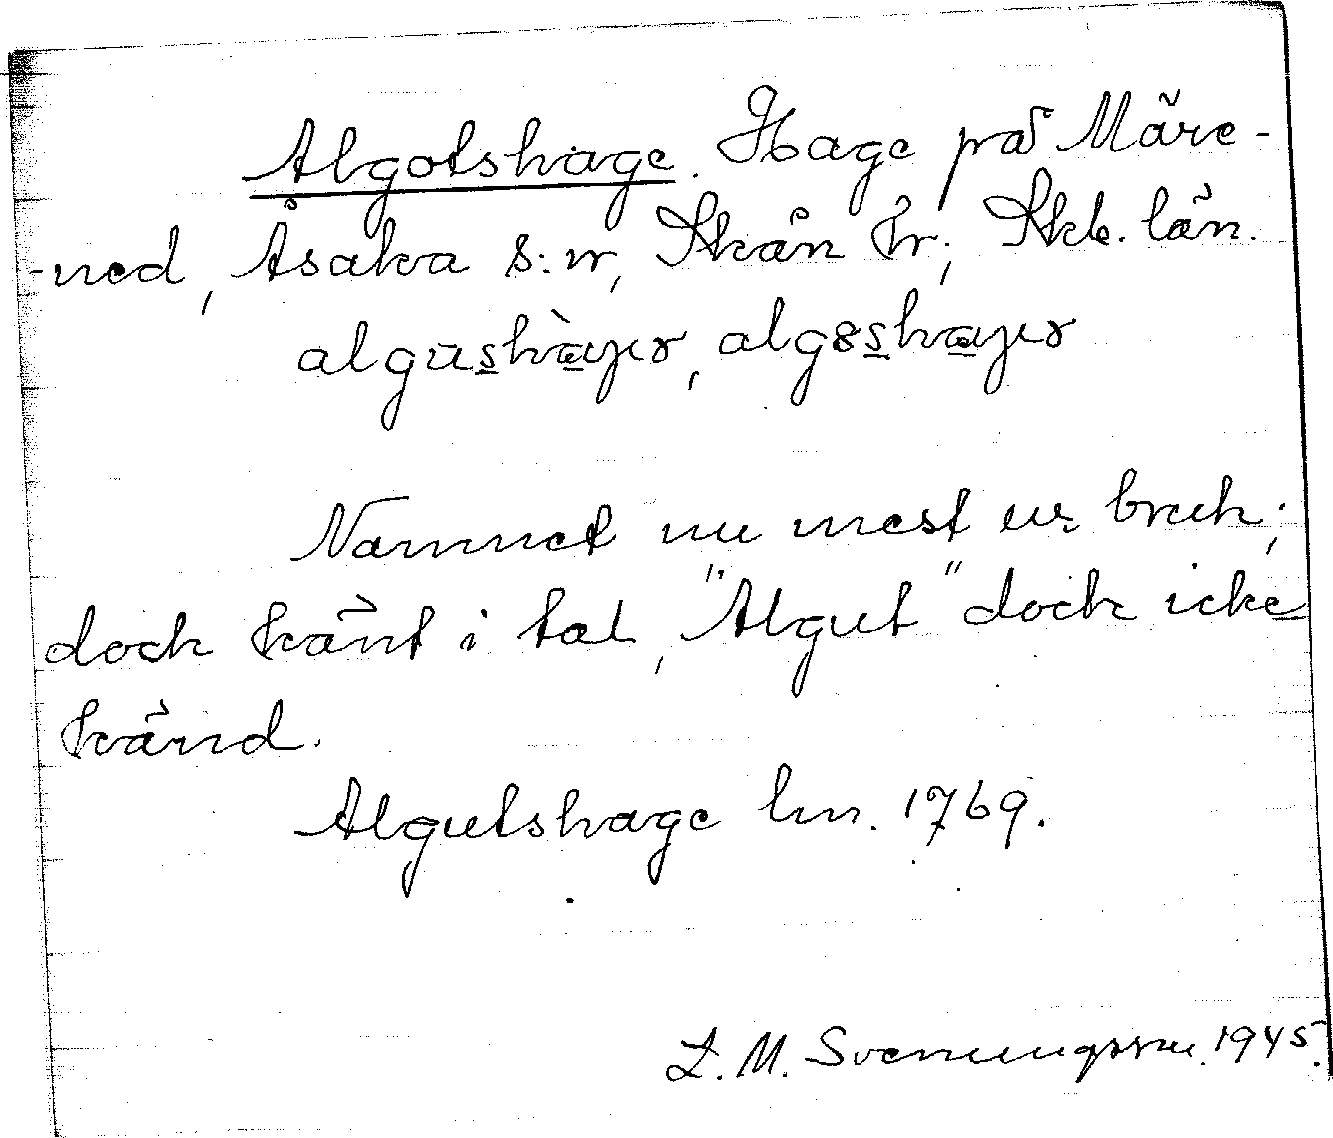 Algotshage. Hage på Märe-
ned, Åsaka s:n, Skån hr; Skb. län.
Namnet nu mest ur bruk;
doch känt i tal, "Algut" doch icke
känd.
Algutshage lm. 1769.
L. M. Svenungsson. 1945.